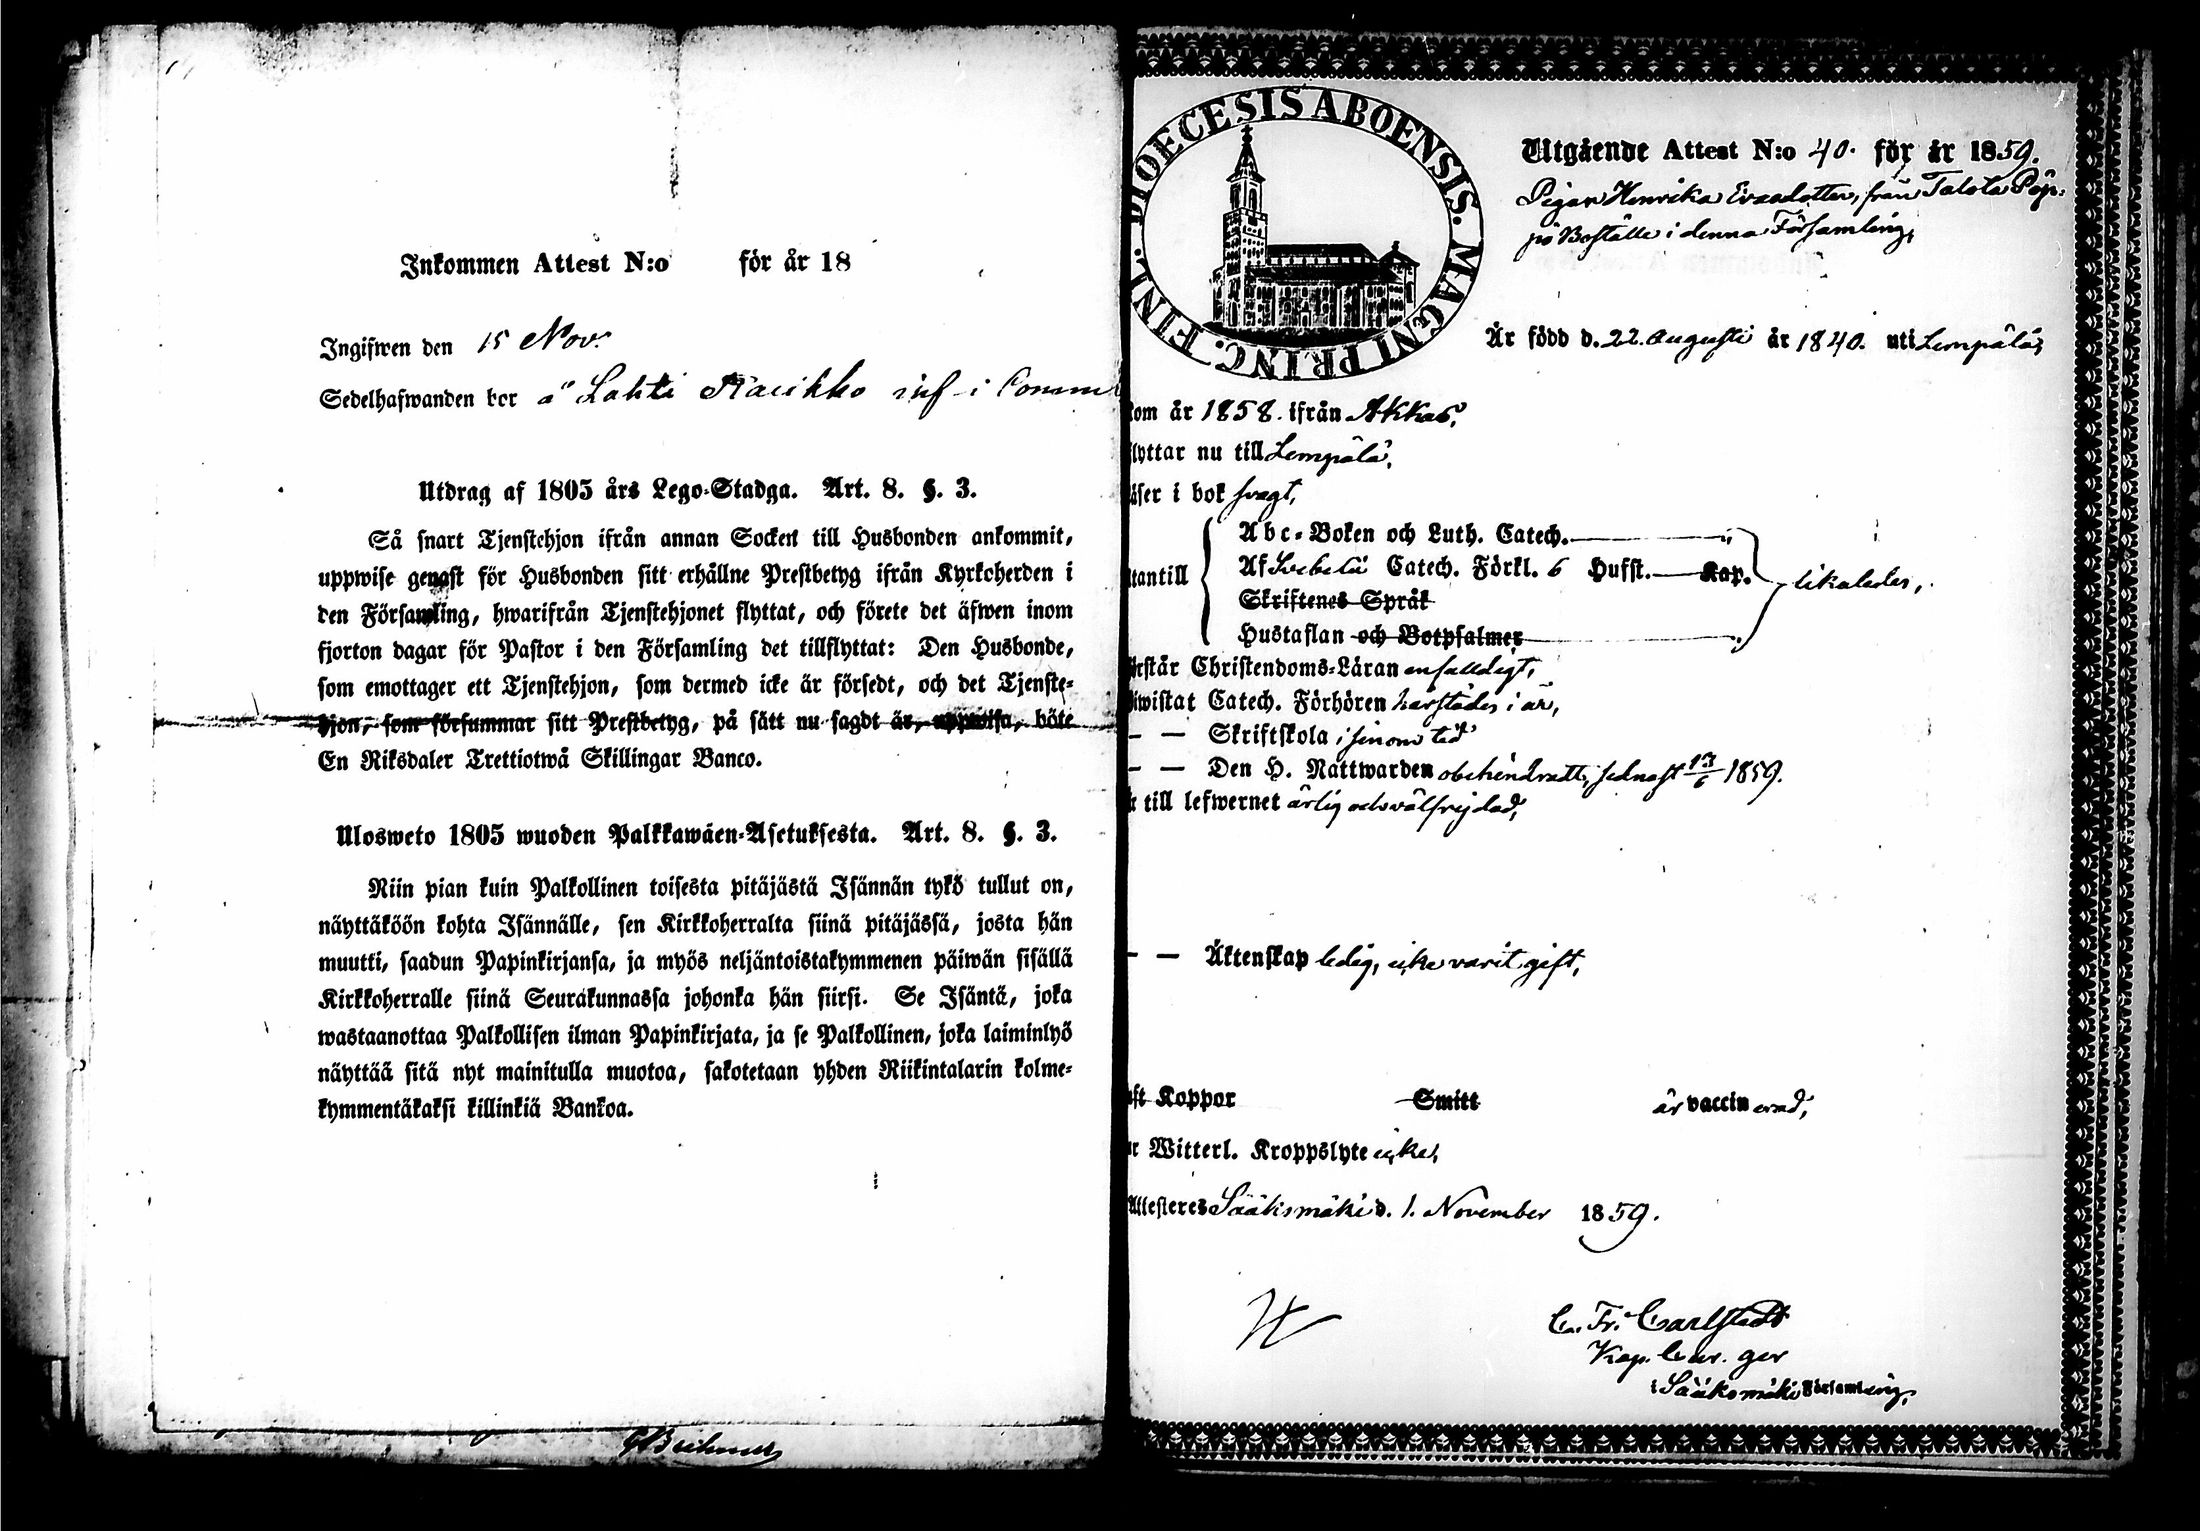 Inkommen Attest N:o för år 18
Ingifwen den 15 Nov.
Sedelhafwanden bor å Lahti i Comm
Utdrag af 1805 års Lego-Stadga. Art. 8. §. 3.
Så snart Tjenstehjon ifrån annan Socken till Husbonden ankommit,
uppwise genast för Husbonden sitt erhållne Prestbetyg ifrån Kyrkoherden i
den Församling, hwarifrån Tjenstehjonet flyttat, och förete det äfwen inom
fjorton dagar för Pastor i den Församling det tillflyttat: Den Husbonde,
som emottager ett Tjenstehjon, som dermed icke är försedt, och det Tjenste-
hjon, som försummar sitt Prestbetyg, på sätt nu sagdt är, uppwisa, böte
En Riksdaler Trettiotwå Skillingar Banco.
Ulosweto 1805 wuoden Palkkawäen-Asetuksesta. Art. 8. §. 3.
Niin pian kuin Palkollinen toisesta pitäjästä Isännän tykö tullut on,
näyttäköön kohta Isännälle, sen Kirkkoherralta siinä pitäjässä, josta hän
muutti, saadun Papinkirjansa, ja myös neljäntoistakymmenen päiwän sisällä
Kirkkoherralle siinä Seurakunnassa johonka hän siirsi. Se Isäntä, joka
wastaanottaa Palkollisen ilman Papinkirjata, ja se Palkollinen, joka laiminlyö
näyttää sitä nyt mainitulla muotoa, sakotetaan yhden Riikintalarin kolme-
kymmentäkaksi killinkiä Bankoa.
DIOECESIS ABOENSIS. MAGNI PRINC. FINL.
Utgående Attest N:o 40. för år 1859.
Pigan Henrika Evasdotter, från Talola Pap-
på Boställe i denna Församling,
Är född d. 22. Augusti år 1840. uti Lempälä,
kom år 1858. ifrån Akkas,
flyttar nu till Lempälä,
läser i bok svagt,
utantill
Abc-Boken och Luth. Catech.
Af Svebelii Catech. Förkl. 6 Hufst. Kap. likaledes,
Skriftenes Språk
Hustaflan och Botpsalmer
förstår Christendoms-Läran enfaldigt,
biwistat Catech. Förhören härstädes i år,
— — Skriftskola i sinom tid
— — Den H. Nattwarden obehindradt, sednast 13/6 1859.
är till lefwernet ärlig och välfrejdad,
— — Äktenskap ledig, icke varit gift,
haft Koppor Smitt är vaccinerad,
har Witterl. Kroppslyte icke,
Attesteres Sääksmäki d. 1. November 1859.
C. Fr. Carlstedt
Kap. Cur. ger
i Sääksmäki Församling,